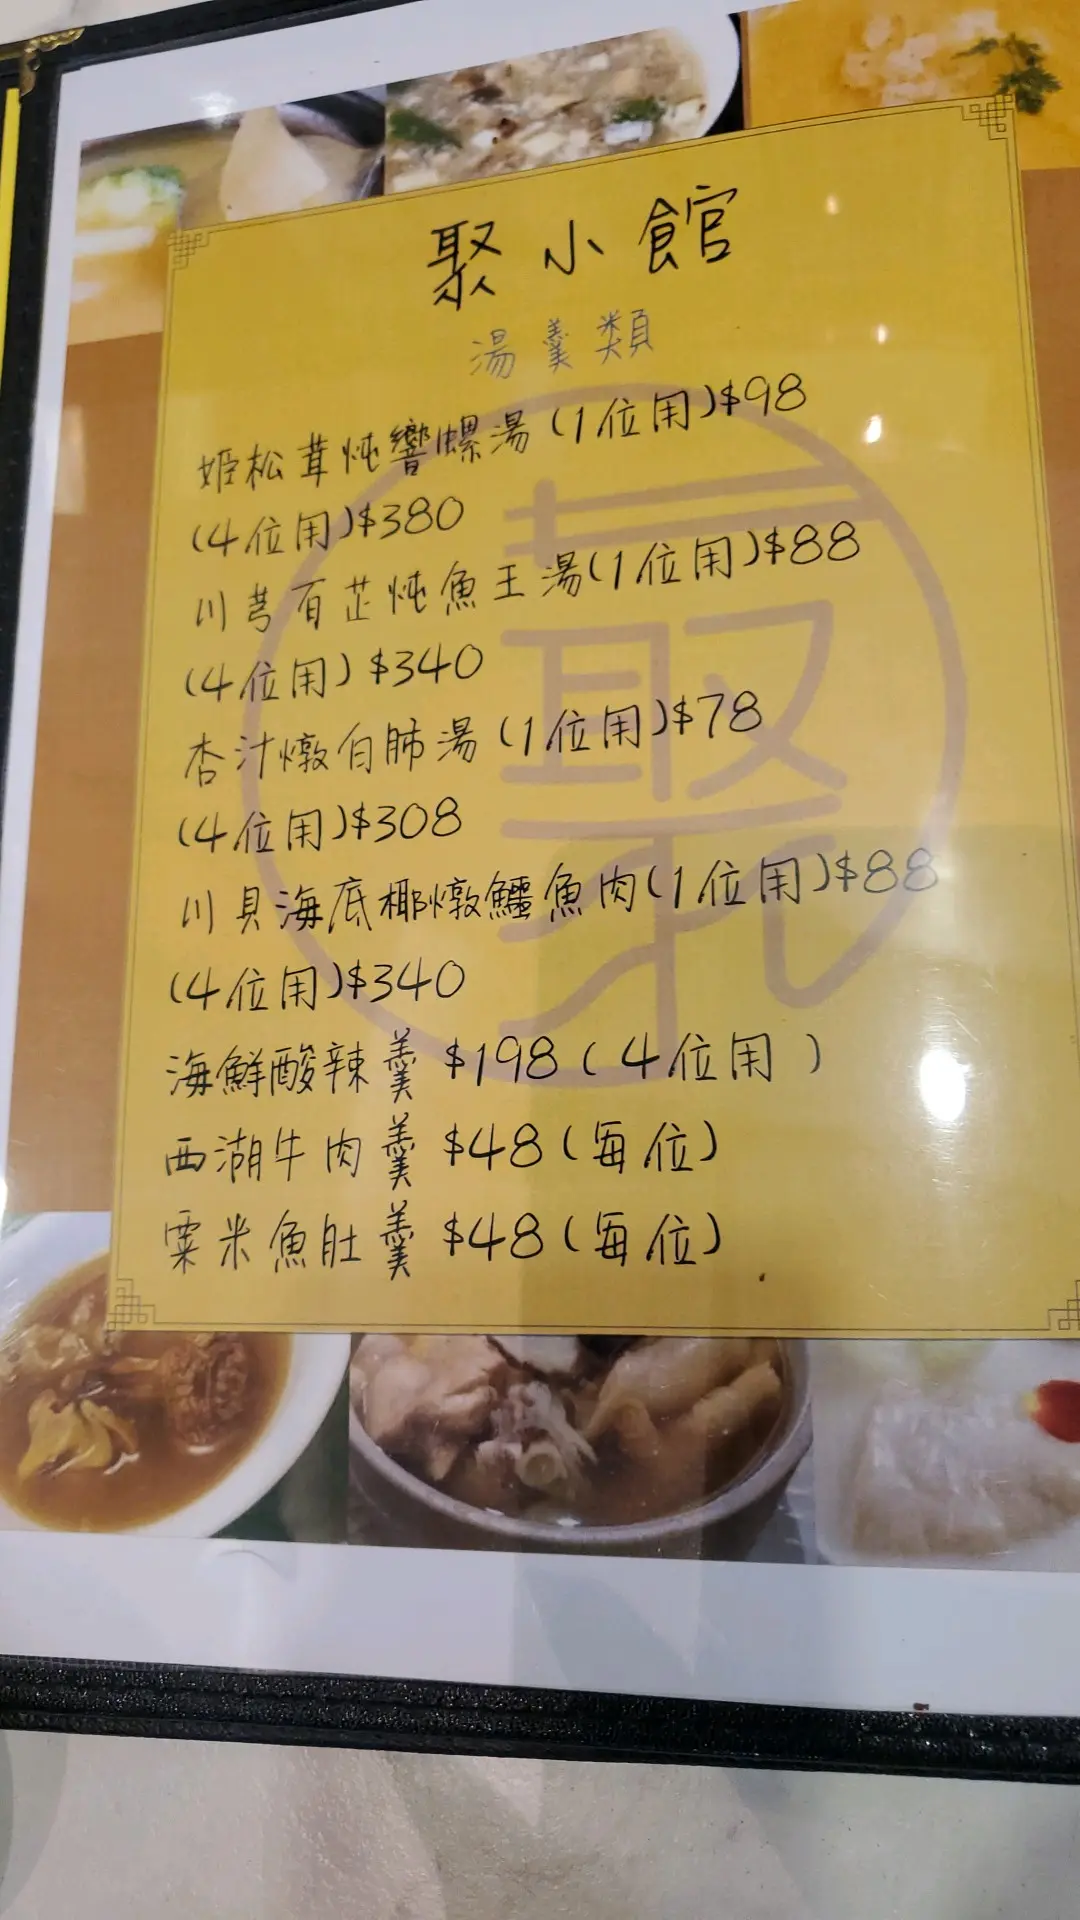 聚小館
湯羹類
姬松茸炖響螺湯(1位用)$98
(4位用)$380
川芎白芷炖魚王湯(1位用)$88
(4位用)$340
杏汁燉白肺湯(1位用)$78
(4位用)$308
川貝海底椰燉鱷魚肉(1位用)$88
(4位用)$340
海鮮酸辣羹 $198(4位用)
西湖牛肉羹 $48(每位)
粟米魚肚羹 $48(每位)
聚